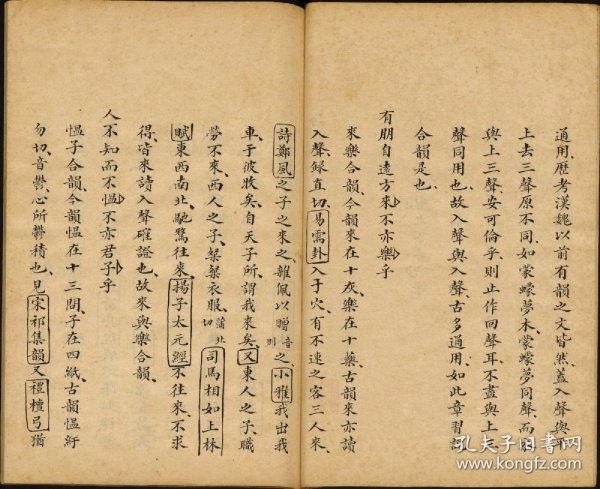 通用、歷考漢魏以前有韻之文皆然、蓋入聲與平
上去三聲原不同、如蒙蠓夢木、蒙蠓夢同聲、而木
與上三聲安可倫乎、則止作回聲耳、不盡與上三
聲同用也、故入聲與入聲、古多通用、如此章習說
合韻是也、
有朋自遠方來、不亦樂乎
來樂合韻、今韻來在十灰、樂在十藥、古韻來亦讀
入聲、録直切、易需卦、入于穴、有不速之客三人來、
詩鄭風、之子之來之、雜佩以贈音則之、小雅、我出我
車、于彼牧矣、自天子所、謂我來矣、又、東人之子、職
勞不來、西人之子、粲粲衣服、蒲北切、司馬相如上林
賦、東西南北、馳騖往來、揚子太元經、不往來、不求
得、皆來讀入聲確證也、故來與樂合韻、
人不知而不慍、不亦君子乎
慍子合韻、今韻慍在十三問、子在四紙、古韻慍紆
勿切、音鬱、心所鬱積也、見宋祁集韻、又禮檀弓、猶
孔夫子旧书网
www.kongfz.com